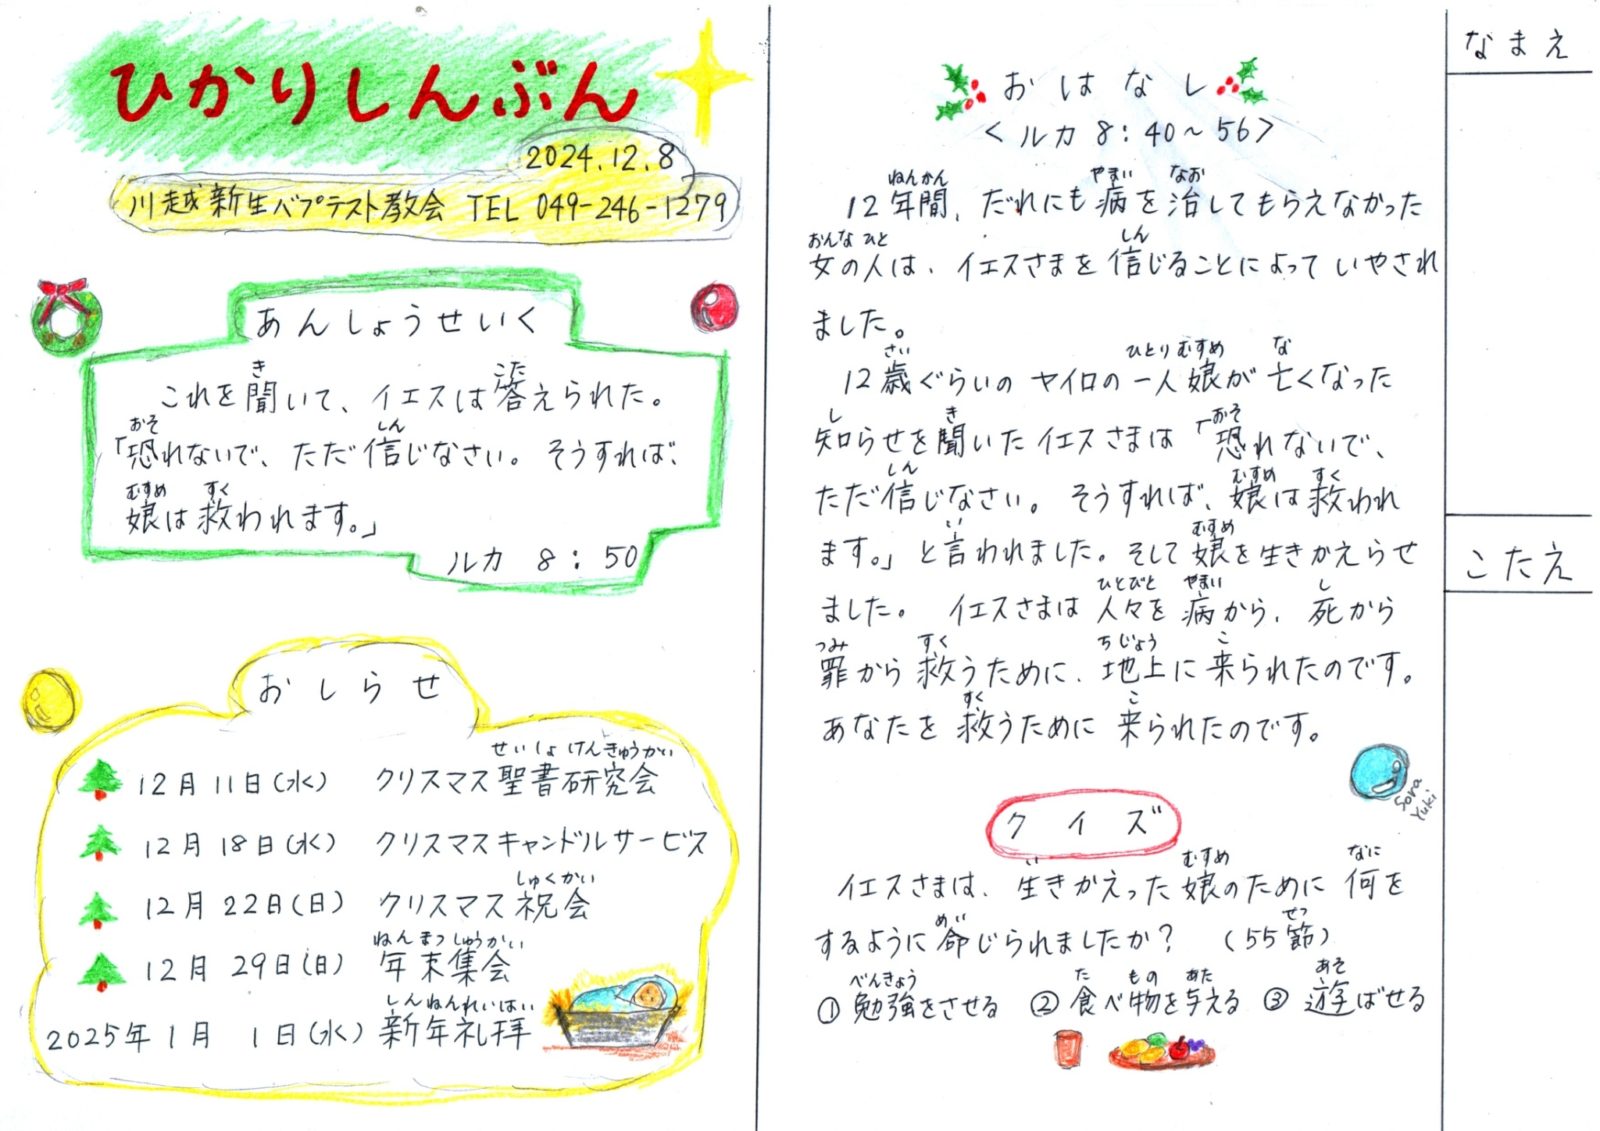 ひかりしんぶん
2024.12.8
川越新生バプテスト教会 TEL 049-246-1279
あんしょうせいく
これを聞いて、イエスは答えられた。
「恐れないで、ただ信じなさい。そうすれば、
娘は救われます。」
ルカ 8:50
おしらせ
12月11日(水) クリスマス聖書研究会
12月18日(水) クリスマスキャンドルサービス
12月22日(日) クリスマス祝会
12月29日(日) 年末集会
2025年1月1日(水) 新年礼拝
おはなし
<ルカ 8:40~56>
12年間、だれにも病を治してもらえなかった
女の人は、イエスさまを信じることによっていやされ
ました。
12歳ぐらいのヤイロの一人娘が亡くなった
知らせを聞いたイエスさまは「恐れないで、
ただ信じなさい。そうすれば、娘は救われ
ます。」と言われました。そして娘を生きかえらせ
ました。イエスさまは人々を病から、死から
罪から救うために、地上に来られたのです。
あなたを救うために来られたのです。
Sora
Yuki
クイズ
イエスさまは、生きかえった娘のために何を
するように命じられましたか? (55節)
①勉強をさせる ②食べ物を与える ③遊ばせる
なまえ
こたえ